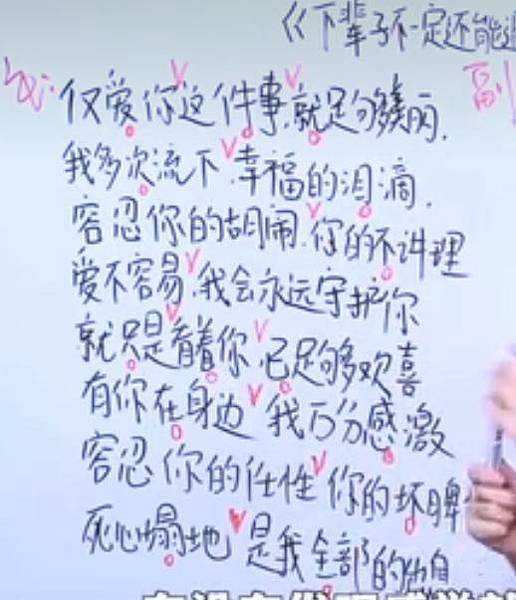 《下辈子不一定还能遇
副
仅爱你这件事,就足够美丽,
我多次流下,幸福的泪滴,
容忍你的胡闹.你的不讲理
爱不容易,我会永远守护你
就只是看着你,已足够欢喜
有你在身边 我万分感激
容忍你的任性 你的坏脾
死心塌地 是我全部的